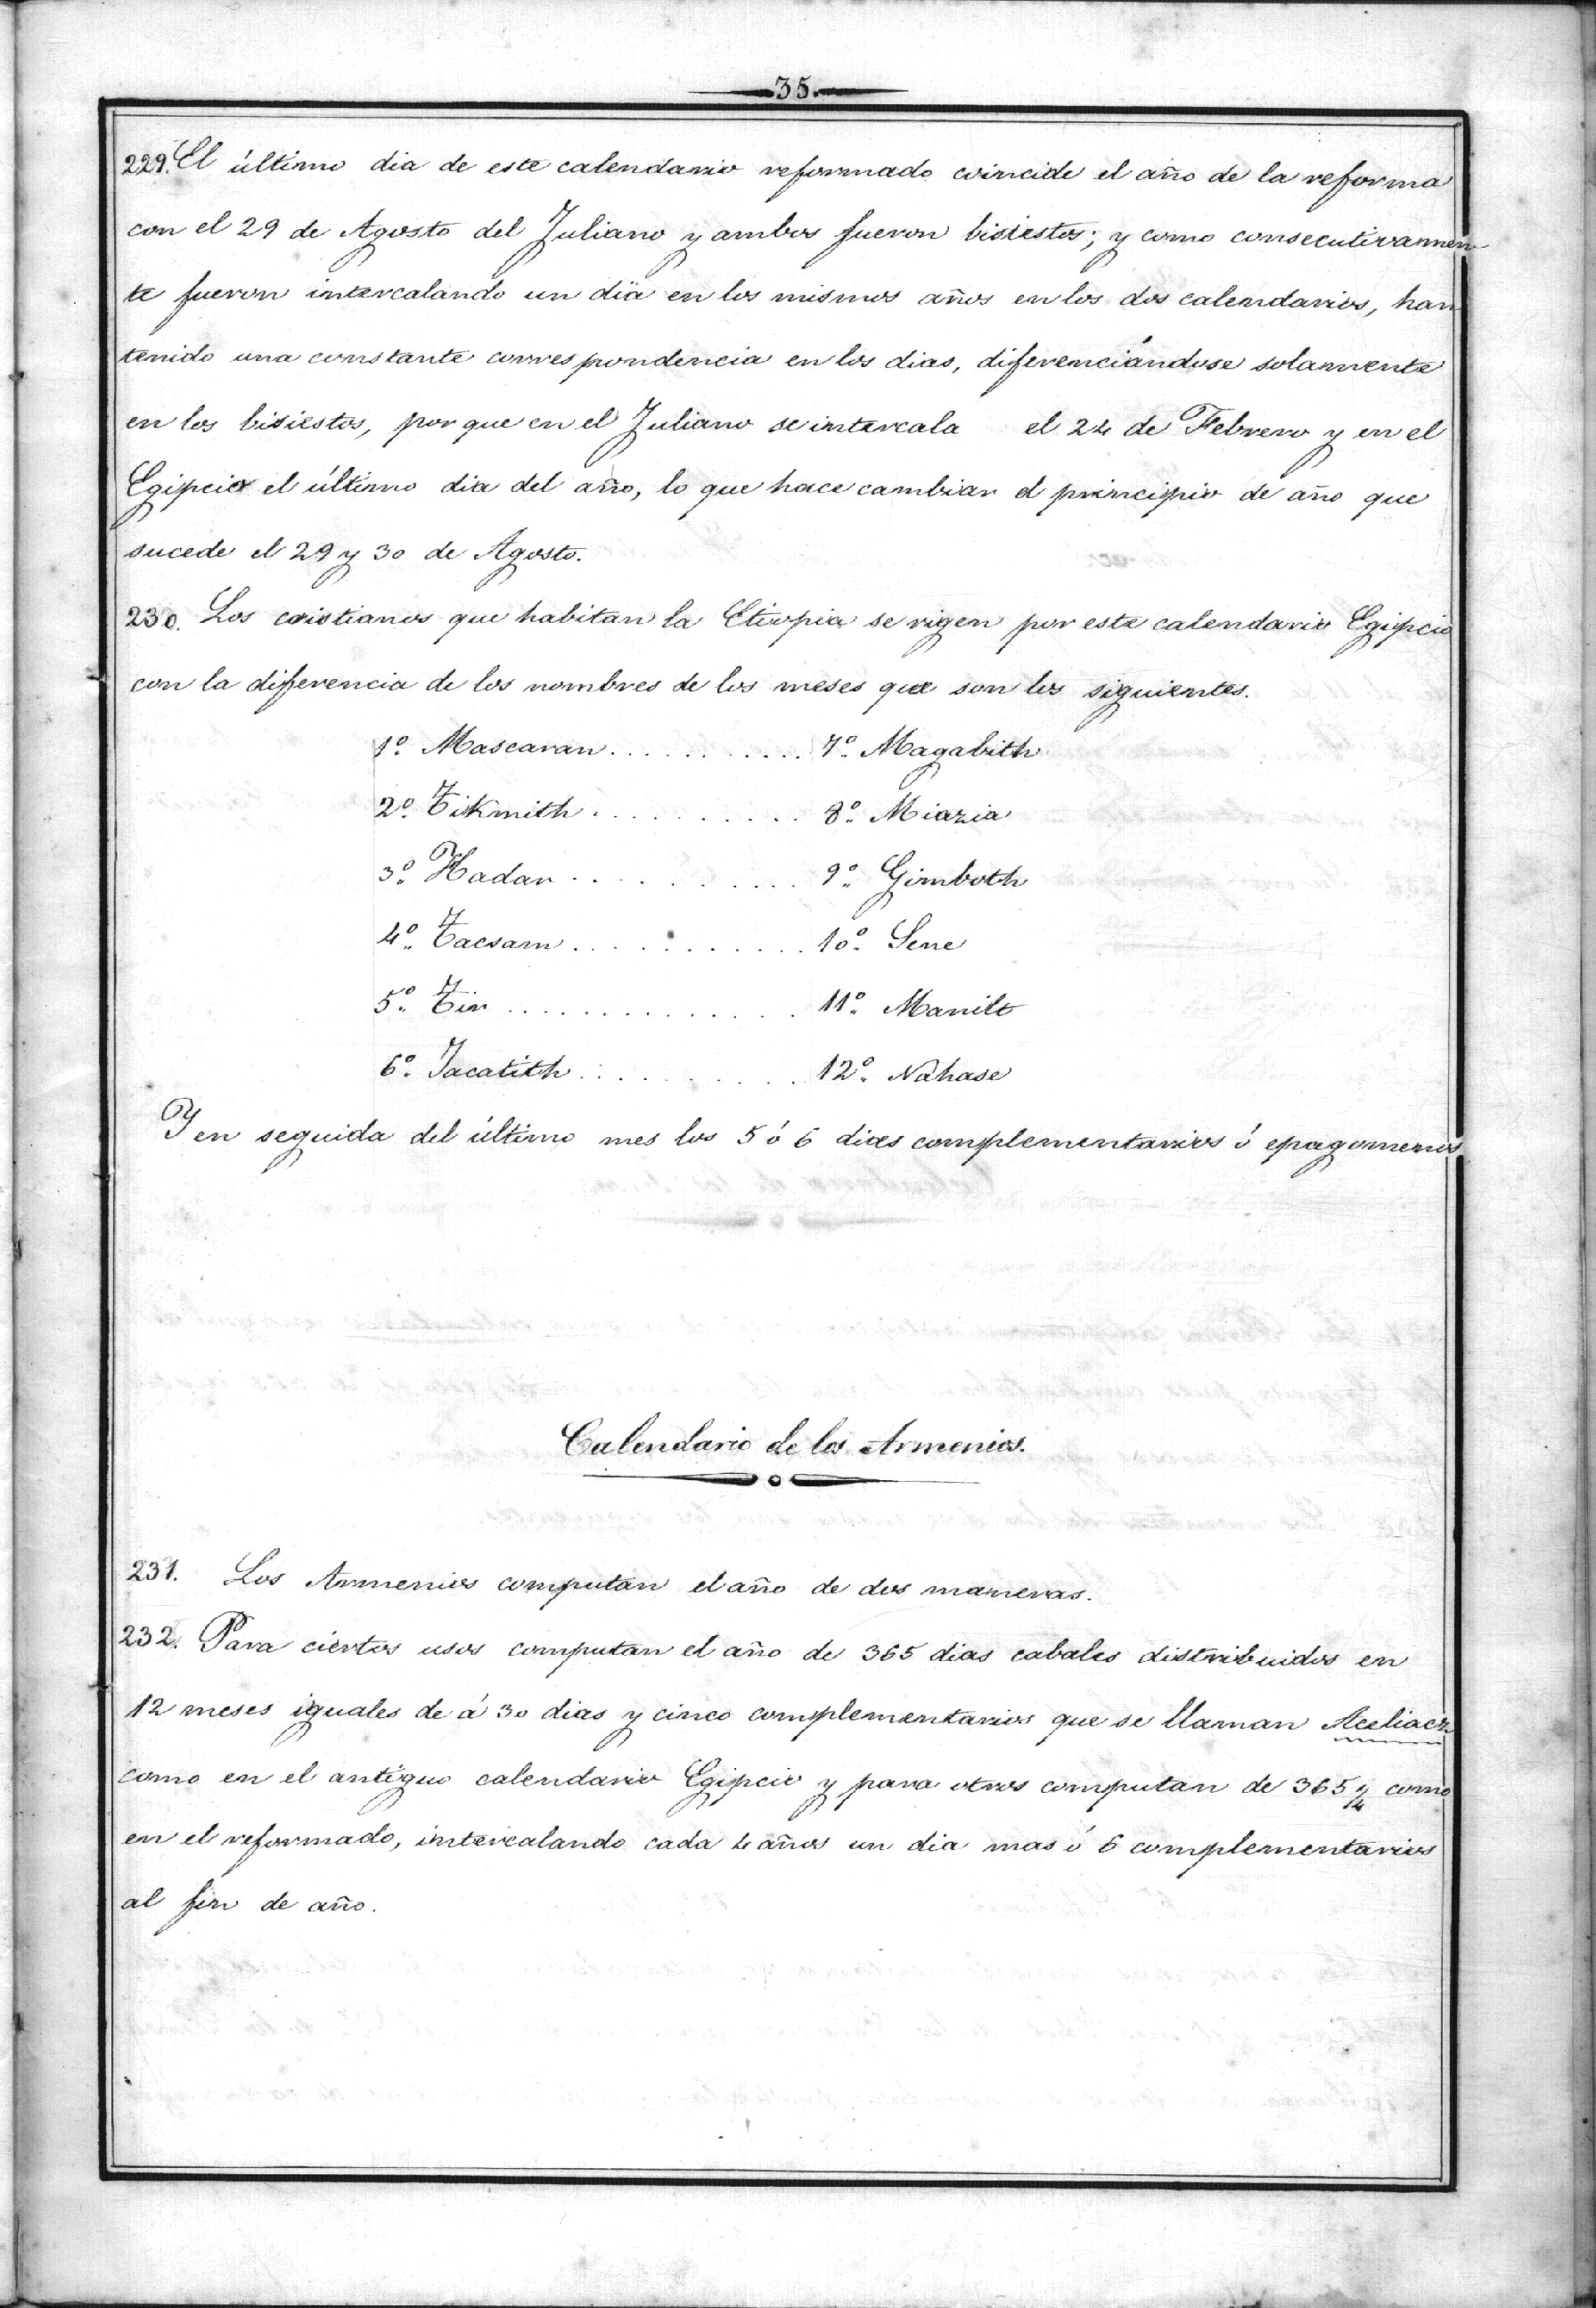 35.
229. El último dia de este calendario reformado coincide el año de la reforma
con el 29 de Agosto del Juliano y ambos fueron bisiestos; y como consecutivamen
te fueron intercalando un dia en los mismos años en los dos calendarios, han
tenido una constante correspondencia en los dias, diferenciándose solamente
en los bisiestos, porque en el Juliano se intercala el 24 de Febrero y en el
Egipcio el último dia del año, lo que hace cambiar el principio de año que
sucede el 29 y 30 de Agosto.
230. Los cristianos que habitan la Etiopia se rigen por este calendario Egipcio
con la diferencia de los nombres de los meses que son los siguientes.
1º. Mascaran . . . . . . . . . . 7º. Magabith
2º. Tikmith . . . . . . . . . . 8º. Miazia
3º. Hadar . . . . . . . . . . 9º. Gimboth
4º. Tacsam . . . . . . . . . . 10º. Sene
5º. Tir . . . . . . . . . . . . . 11º. Manilt
6º. Jacatith . . . . . . . . . . 12º. Nahase
Y en seguida del último mes los 5 ó 6 dias complementarios ó epagomenos
Calendario de los Armenios.
231. Los Armenios computan el año de dos maneras.
232. Para ciertos usos computan el año de 365 dias cabales distribuidos en
12 meses iguales de á 30 dias y cinco complementarios que se llaman Aceliacz
como en el antiguo calendario Egipcio y para otros computan de 365 1/4 como
en el reformado, intercalando cada 4 años un dia mas ó 6 complementarios
al fin de año.